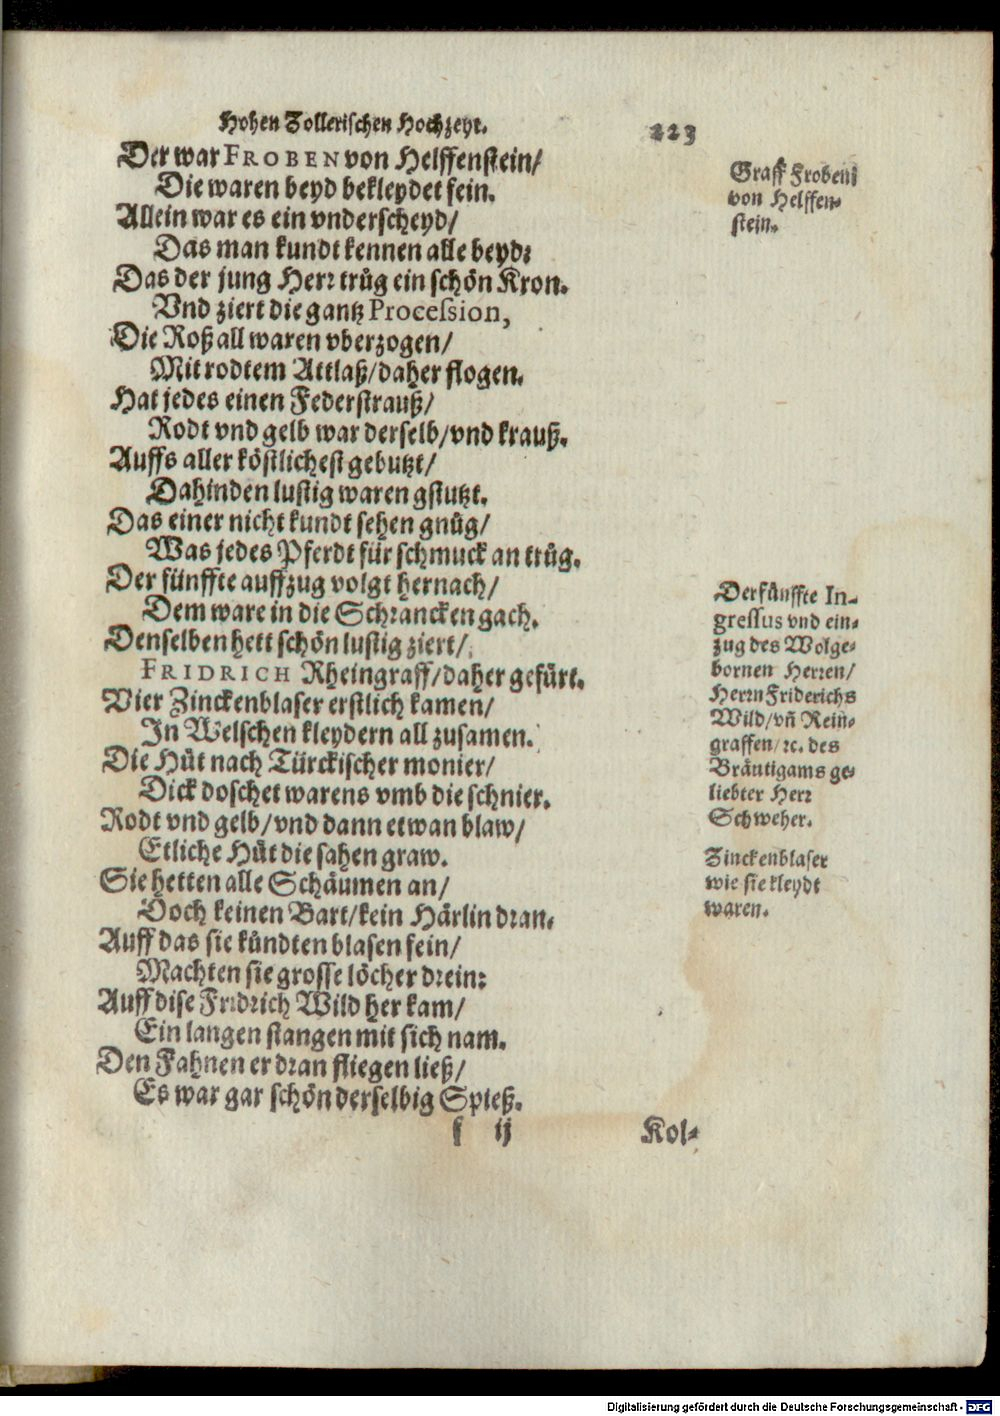 Hohen Zollerischen Hochzeyt. 223
Der war FROBEN von Helffenstein/
Die waren beyd bekleydet fein.
Allein war es ein vnderscheyd/
Das man kundt kennen alle beyd:
Das der jung Herr trůg ein schön Kron.
Vnd ziert die gantz Procession,
Die Roß all waren vberzogen/
Mit rodtem Attlaß/daher flogen.
Hat jedes einen Federstrauß/
Rodt vnd gelb war derselb/vnd krauß.
Auffs aller köstlichest gebutzt/
Dahinden lustig waren gstutzt.
Das einer nicht kundt sehen gnůg/
Was jedes Pferdt für schmuck an trůg.
Der fünffte auffzug volgt hernach/
Dem ware in die Schrancken gach.
Denselben hett schön lustig ziert/
FRIDRICH Rheingraff/daher gefürt.
Vier Zinckenblaser erstlich kamen/
In Welschen kleydern all zusamen.
Die Hüt nach Türckischer monier/
Dick doschet warens vmb die schnier.
Rodt vnd gelb/vnd dann etwan blaw/
Etliche Hüt die sahen graw.
Sie hetten alle Schäumen an/
Doch keinen Bart/kein Härlin dran.
Auff das sie kündten blasen fein/
Machten sie grosse löcher drein:
Auff dise Fridrich Wild her kam/
Ein langen stangen mit sich nam.
Den Fahnen er dran fliegen ließ/
Es war gar schön derselbig Spieß.
k ij Kol-
Graff Froben
von Helffen-
stein.
Der fünffte In-
gressus vnd ein-
zug des Wolge-
bornen Herren/
Herrn Friderichs
Wild/vñ Rein-
graffen/ꝛc. des
Bräutigams ge-
liebter Herr
Schweher.
Zinckenblaser
wie sie kleydt
waren.
Digitalisierung gefördert durch die Deutsche Forschungsgemeinschaft - DFG